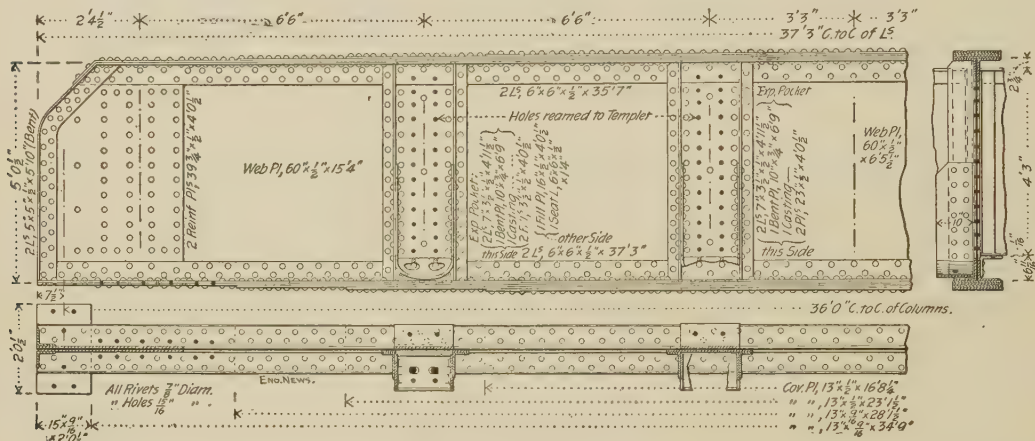 2'4½" 6'6" 6'6" 3'3" 3'3"
37'3" C. to C of Lˢ
5'0½"
2 Lˢ, 5"x 5"x ½"x 5'10"(Bent)
2 Reinf Plˢ 39¾"x ½"x 4'0½"
Web Pl, 60"x ½"x 15'4"
2 Lˢ, 6"x 6"x ½"x 35'7"
Holes reamed to Templet
Exp. Pocket:
2 Lˢ 7"x 3½"x ½"x 4'11½"
1 Bent Pl, 10"x ¾"x 6'9"
1 Casting
this Side
1 Fill Pl, 16"x ½"x 4'0½"
1 Seat L, 6"x 6"x ½"
x 14"
other Side
2 Lˢ, 6"x 6"x ½"x 37'3"
Exp. Pocket
2 Lˢ 7"x 3½"x ½"x 4'11½"
1 Bent Pl, 10"x ¾"x 6'9"
1 Casting
2 Pl, 23"x ½"x 4'0½"
this Side
Web Pl,
60"x ½"
x 6'5½"
2¾"
4'3"
10"
7½"
36'0" C. to C. of Columns.
2'0½"
ENG. NEWS.
All Rivets ⅞" Diam.
" Holes 15/16 "
Cov. Pl, 13"x ½"x 16'8¼"
" " , 13"x ½"x 23'1½"
" " , 13"x 9/16"x 28'1½"
" " , 13"x 9/16"x 34'9"
15"x 9/16"
x 2'0½"